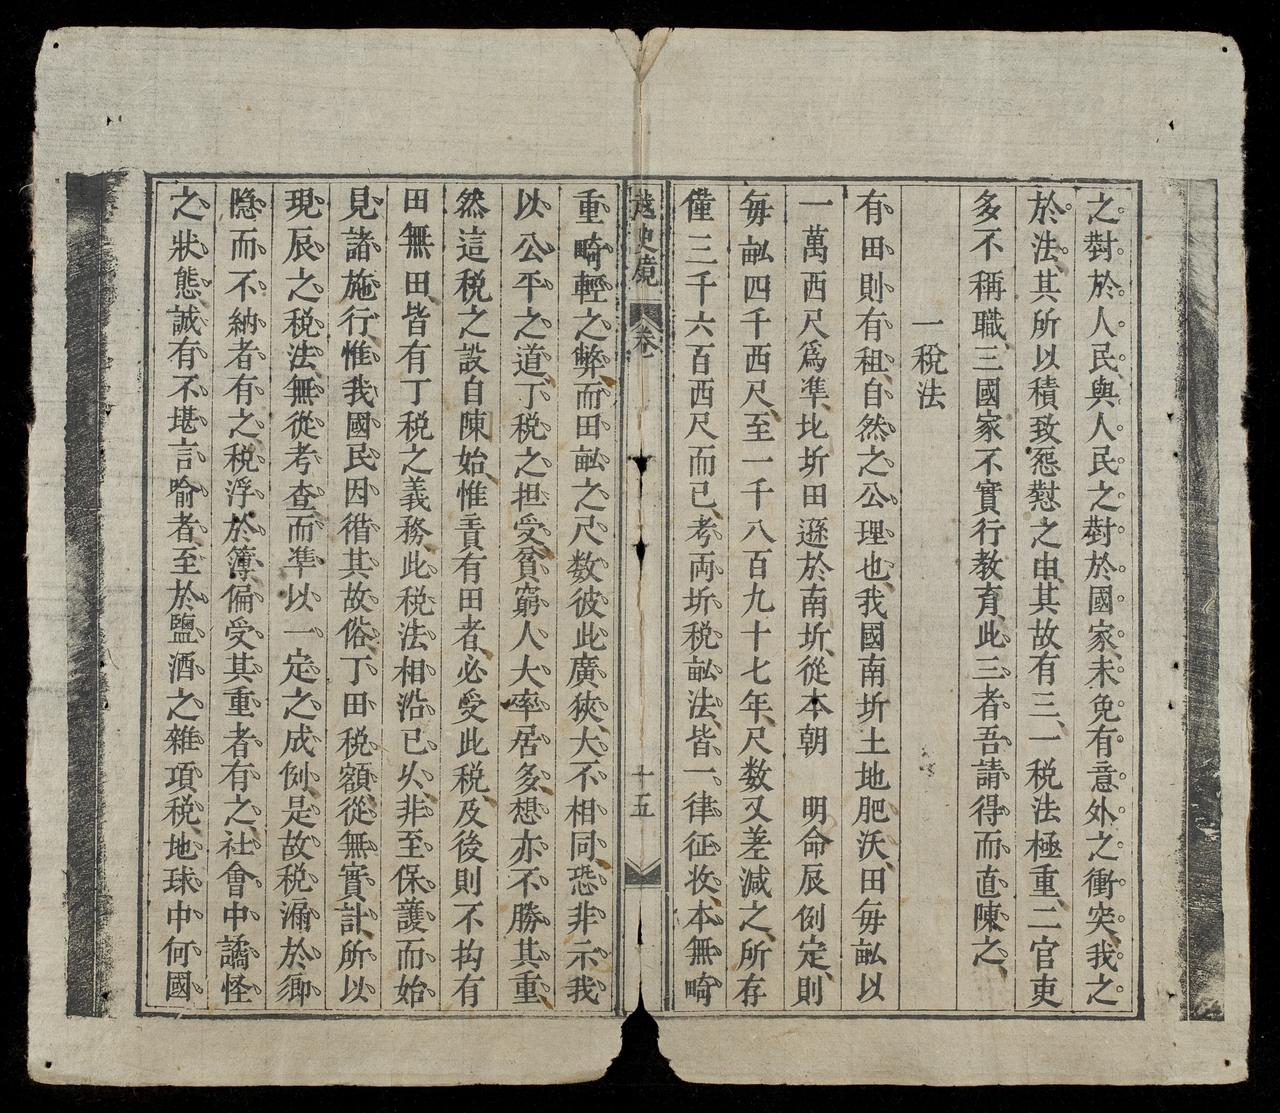 之對於人民與人民之對於國家未免有意外之衝突我之
於法其所以積致怨懟之由其故有三一税法極重二官吏
多不稱職三國家不實行教育此三者吾請得而直陳之
一税法
有田則有租自然之公理也我國南圻土地肥沃田每畝以
一萬西尺爲準北圻田遜於南圻從本朝　明命辰例定則
每畝四千西尺至一千八百九十七年尺数又差減之所存
僅三千六百西尺而已考両圻税畝法皆一律征收本無畸
越史鏡
卷一
十五
重畸輕之弊而田畝之尺数彼此廣狹大不相同恐非示我
以公平之道丁税之担受貧窮人大率居多想亦不勝其重
然這税之設自陳始惟責有田者必受此税及後則不抅有
田無田皆有丁税之義務此税法相沿已乆非至保護而始
見諸施行惟我國民因循其故俗丁田税額從無實計所以
現辰之税法無從考查而準以一定之成例是故税漏於鄉
隐而不納者有之税浮於簿偏受其重者有之社會中譎怪
之狀態誠有不堪言喻者至於鹽酒之雜項税地球中何國